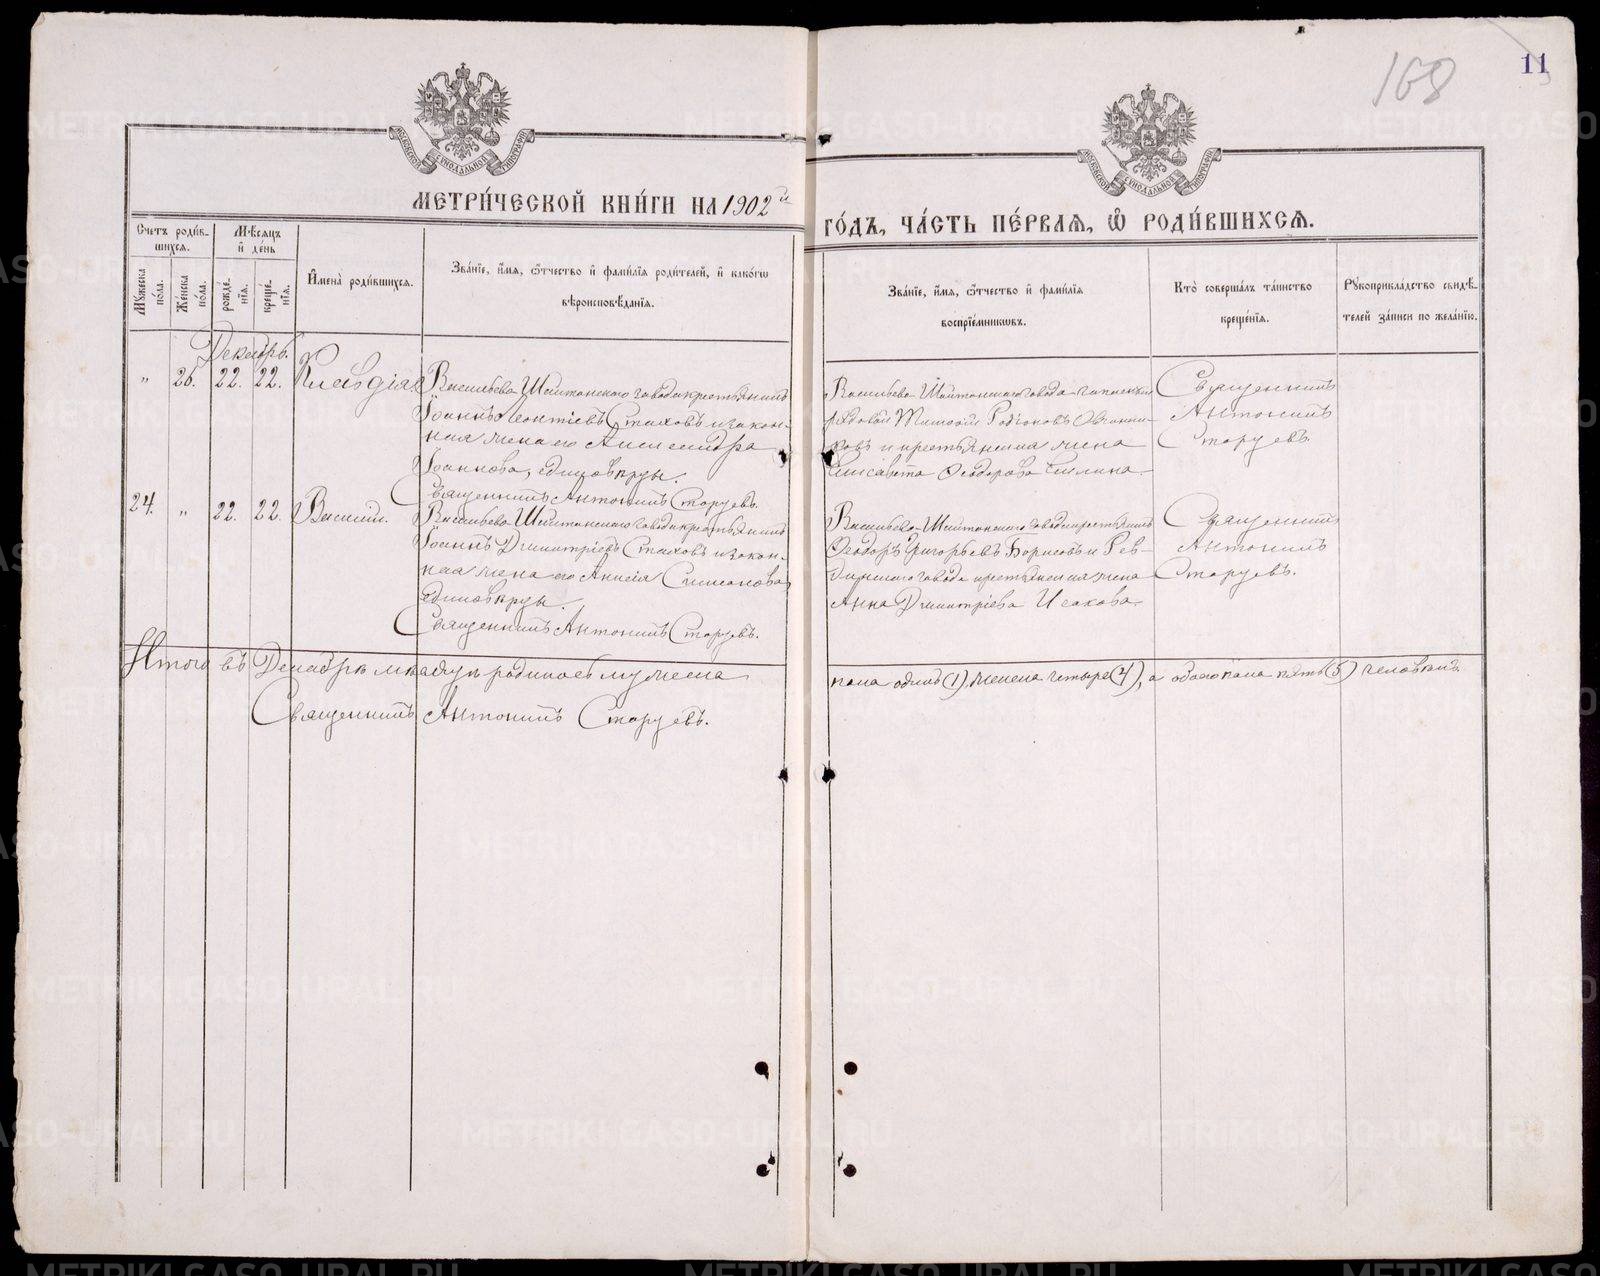 168
11
МОСКОВСКОЙ СУНОДАЛЬНОЙ ТИПОГРАФІИ
МОСКОВСКОЙ СУНОДАЛЬНОЙ ТИПОГРАФІИ
МЕТРИ́ЧЕСКОЙ КНИ́ГИ НА 1902й
ГО́ДЪ, ЧА́СТЬ ПЕ́РВАѦ, Ѽ РОДИ́ВШИХСѦ.
Счетъ роди́в-
шихся.
Мѣсяцъ
и҆ де́нь
Мꙋжеска по́ла.
Же́нска по́ла.
рожде́-
нїѧ.
креще́-
нїѧ.
И҆мена̀ роди́вшихся.
Зва́нїе, и҆́мѧ, ѻ҆́тчество и҆ фами́лїѧ роди́телей, и҆ како́гѡ
вѣроисповѣ́данїѧ.
Зва́нїе, и҆́мѧ, ѻ҆́тчество и҆ фами́лїѧ
воспрїе́мникѡвъ.
Кто̀ соверша́лъ та́инство
креще́нїѧ.
Рꙋкоприкла́дство свидѣ́-
телей за́писи по жела́нїю.
Декабрь.
„ 26. 22. 22. Клавдія.
Васильево-Шайтанскаго завода крестьянинъ
Іоаннъ Леонтіевъ Стаховъ и закон-
ная жена его Александра
Іоаннова, единовѣрцы.
Священникъ Антонинъ Старцевъ.
Васильево-Шайтанскаго завода запасный
рядовой Тимоѳей Родіоновъ
ковъ и крестьянская жена
Елисавета Ѳеодорова
Священникъ
Антонинъ
Старцевъ
24. „ 22. 22. Василій.
Васильево-Шайтанскаго завода крестьянинъ
Іоаннъ Димитріевъ Стаховъ и закон-
ная жена его Анисія Симеонова,
единовѣрцы.
Священникъ Антонинъ Старцевъ.
Васильево-Шайтанскаго завода крестьянинъ
Ѳеодоръ Григорьевъ Борисовъ и Рев-
динскаго завода крестьянская жена
Анна Димитріева Исакова.
Священникъ
Антонинъ
Старцевъ.
Итого въ Декабрѣ мѣсяцѣ родилось мужеска
пола одинъ (1), женска четыре (4), а обоего пола пять (5) человѣкъ.
Священникъ Антонинъ Старцевъ.
METRIKI.GASO-URAL.RU